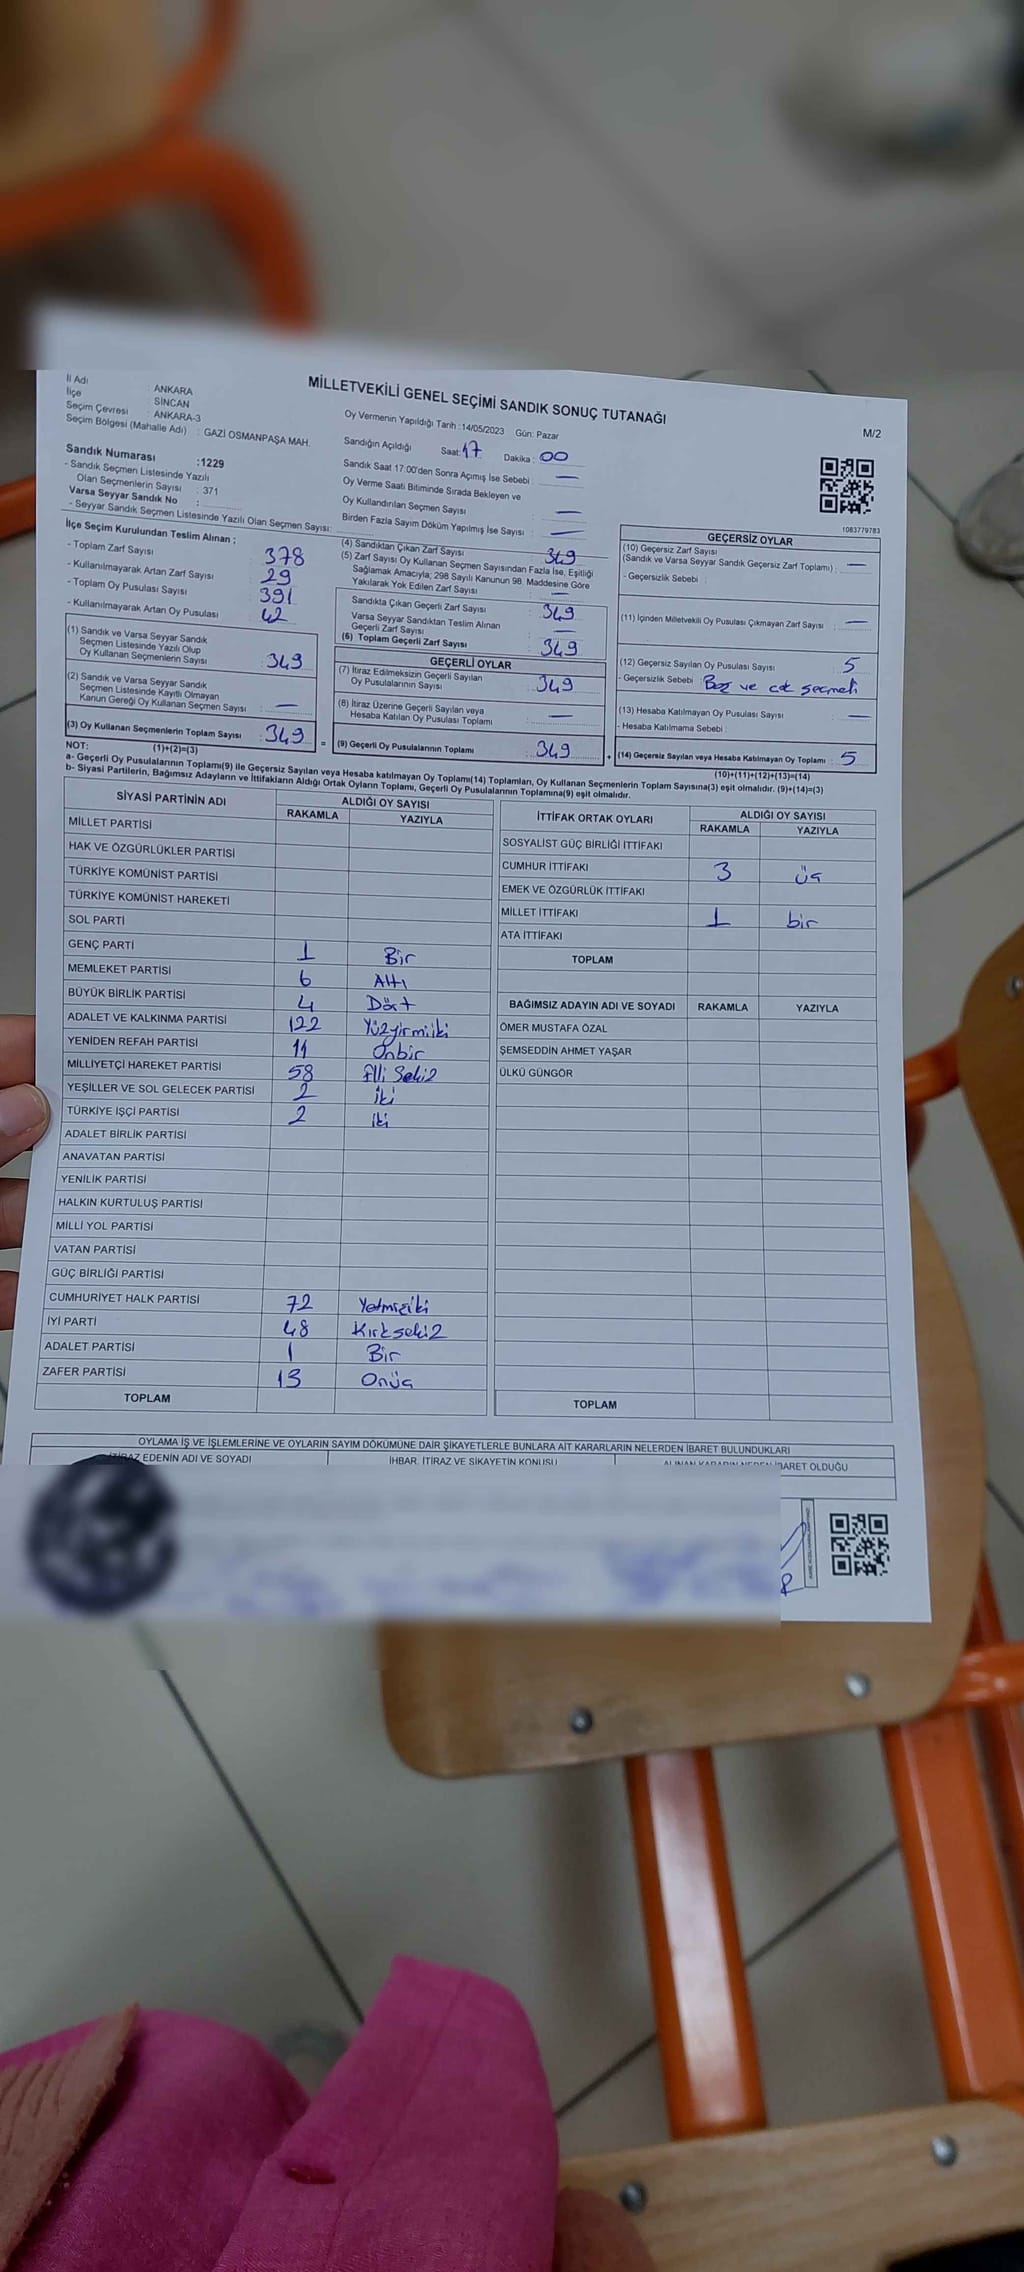 MİLLETVEKİLİ GENEL SEÇİMİ SANDIK SONUÇ TUTANAĞI
M/2
İl Adı : ANKARA
İlçe : SİNCAN
Seçim Çevresi : ANKARA-3
Seçim Bölgesi (Mahalle Adı) : GAZİ OSMANPAŞA MAH.
Sandık Numarası :1229
- Sandık Seçmen Listesinde Yazılı
Olan Seçmenlerin Sayısı : 371
Varsa Seyyar Sandık No :
- Seyyar Sandık Seçmen Listesinde Yazılı Olan Seçmen Sayısı:
Oy Vermenin Yapıldığı Tarih :14/05/2023 Gün: Pazar
Sandığın Açıldığı Saat: 17 Dakika : 00
Sandık Saat 17:00'den Sonra Açımış İse Sebebi : —
Oy Verme Saati Bitiminde Sırada Bekleyen ve
Oy Kullandırılan Seçmen Sayısı : —
Birden Fazla Sayım Döküm Yapılmış İse Sayısı : —
1083779783
İlçe Seçim Kurulundan Teslim Alınan ;
- Toplam Zarf Sayısı : 378
- Kullanılmayarak Artan Zarf Sayısı : 29
- Toplam Oy Pusulası Sayısı : 391
- Kullanılmayarak Artan Oy Pusulası : 42
(1) Sandık ve Varsa Seyyar Sandık
Seçmen Listesinde Yazılı Olup
Oy Kullanan Seçmenlerin Sayısı : 349
(2) Sandık ve Varsa Seyyar Sandık
Seçmen Listesinde Kayıtlı Olmayan
Kanun Gereği Oy Kullanan Seçmen Sayısı : —
(3) Oy Kullanan Seçmenlerin Toplam Sayısı : 349
(1)+(2)=(3)
(4) Sandıktan Çıkan Zarf Sayısı : 349
(5) Zarf Sayısı Oy Kullanan Seçmen Sayısından Fazla İse, Eşitliği
Sağlamak Amacıyla; 298 Sayılı Kanunun 98. Maddesine Göre
Yakılarak Yok Edilen Zarf Sayısı : —
Sandıkta Çıkan Geçerli Zarf Sayısı : 349
Varsa Seyyar Sandıktan Teslim Alınan
Geçerli Zarf Sayısı : —
(6) Toplam Geçerli Zarf Sayısı : 349
GEÇERLİ OYLAR
(7) İtiraz Edilmeksizin Geçerli Sayılan
Oy Pusulalarının Sayısı : 349
(8) İtiraz Üzerine Geçerli Sayılan veya
Hesaba Katılan Oy Pusulası Toplamı : —
= (9) Geçerli Oy Pusulalarının Toplamı : 349
GEÇERSİZ OYLAR
(10) Geçersiz Zarf Sayısı
(Sandık ve Varsa Seyyar Sandık Geçersiz Zarf Toplamı) : —
- Geçersizlik Sebebi :
(11) İçinden Milletvekili Oy Pusulası Çıkmayan Zarf Sayısı : —
(12) Geçersiz Sayılan Oy Pusulası Sayısı : 5
- Geçersizlik Sebebi : Boş ve çok seçmeli
(13) Hesaba Katılmayan Oy Pusulası Sayısı : —
- Hesaba Katılmama Sebebi :
+ (14) Geçersiz Sayılan veya Hesaba Katılmayan Oy Toplamı : 5
(10)+(11)+(12)+(13)=(14)
NOT:
a- Geçerli Oy Pusulalarının Toplamı(9) ile Geçersiz Sayılan veya Hesaba katılmayan Oy Toplamı(14) Toplamları, Oy Kullanan Seçmenlerin Toplam Sayısına(3) eşit olmalıdır. (9)+(14)=(3)
b- Siyasi Partilerin, Bağımsız Adayların ve İttifakların Aldığı Ortak Oyların Toplamı, Geçerli Oy Pusulalarının Toplamına(9) eşit olmalıdır.
SİYASİ PARTİNİN ADI ALDIĞI OY SAYISI
RAKAMLA YAZIYLA
MİLLET PARTİSİ
HAK VE ÖZGÜRLÜKLER PARTİSİ
TÜRKİYE KOMÜNİST PARTİSİ
TÜRKİYE KOMÜNİST HAREKETİ
SOL PARTİ
GENÇ PARTİ 1 Bir
MEMLEKET PARTİSİ 6 Altı
BÜYÜK BİRLİK PARTİSİ 4 Dört
ADALET VE KALKINMA PARTİSİ 122 Yüzyirmiiki
YENİDEN REFAH PARTİSİ 11 Onbir
MİLLİYETÇİ HAREKET PARTİSİ 58 Elli Sekiz
YEŞİLLER VE SOL GELECEK PARTİSİ 2 İki
TÜRKİYE İŞÇİ PARTİSİ 2 İki
ADALET BİRLİK PARTİSİ
ANAVATAN PARTİSİ
YENİLİK PARTİSİ
HALKIN KURTULUŞ PARTİSİ
MİLLİ YOL PARTİSİ
VATAN PARTİSİ
GÜÇ BİRLİĞİ PARTİSİ
CUMHURİYET HALK PARTİSİ 72 Yetmişiki
İYİ PARTİ 48 Kırksekiz
ADALET PARTİSİ 1 Bir
ZAFER PARTİSİ 13 Onüç
TOPLAM
İTTİFAK ORTAK OYLARI ALDIĞI OY SAYISI
RAKAMLA YAZIYLA
SOSYALİST GÜÇ BİRLİĞİ İTTİFAKI
CUMHUR İTTİFAKI 3 üç
EMEK VE ÖZGÜRLÜK İTTİFAKI
MİLLET İTTİFAKI 1 bir
ATA İTTİFAKI
TOPLAM
BAĞIMSIZ ADAYIN ADI VE SOYADI RAKAMLA YAZIYLA
ÖMER MUSTAFA ÖZAL
ŞEMSEDDİN AHMET YAŞAR
ÜLKÜ GÜNGÖR
TOPLAM
OYLAMA İŞ VE İŞLEMLERİNE VE OYLARIN SAYIM DÖKÜMÜNE DAİR ŞİKAYETLERLE BUNLARA AİT KARARLARIN NELERDEN İBARET BULUNDUKLARI
İTİRAZ EDENİN ADI VE SOYADI İHBAR, İTİRAZ VE ŞİKAYETİN KONUSU ALINAN KARARIN NEDEN İBARET OLDUĞU